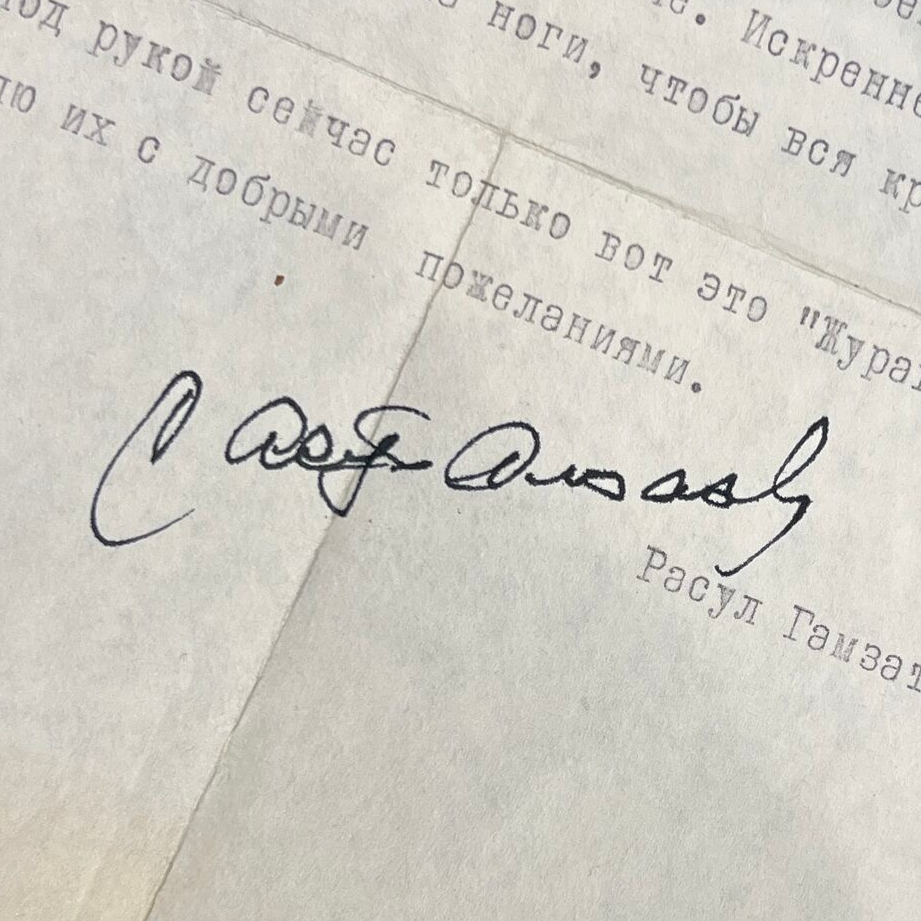 е. Искренне
ноги, чтобы вся кр
под рукой сейчас только вот это "Журав
лю их с добрыми пожеланиями.
Расул Гамзат